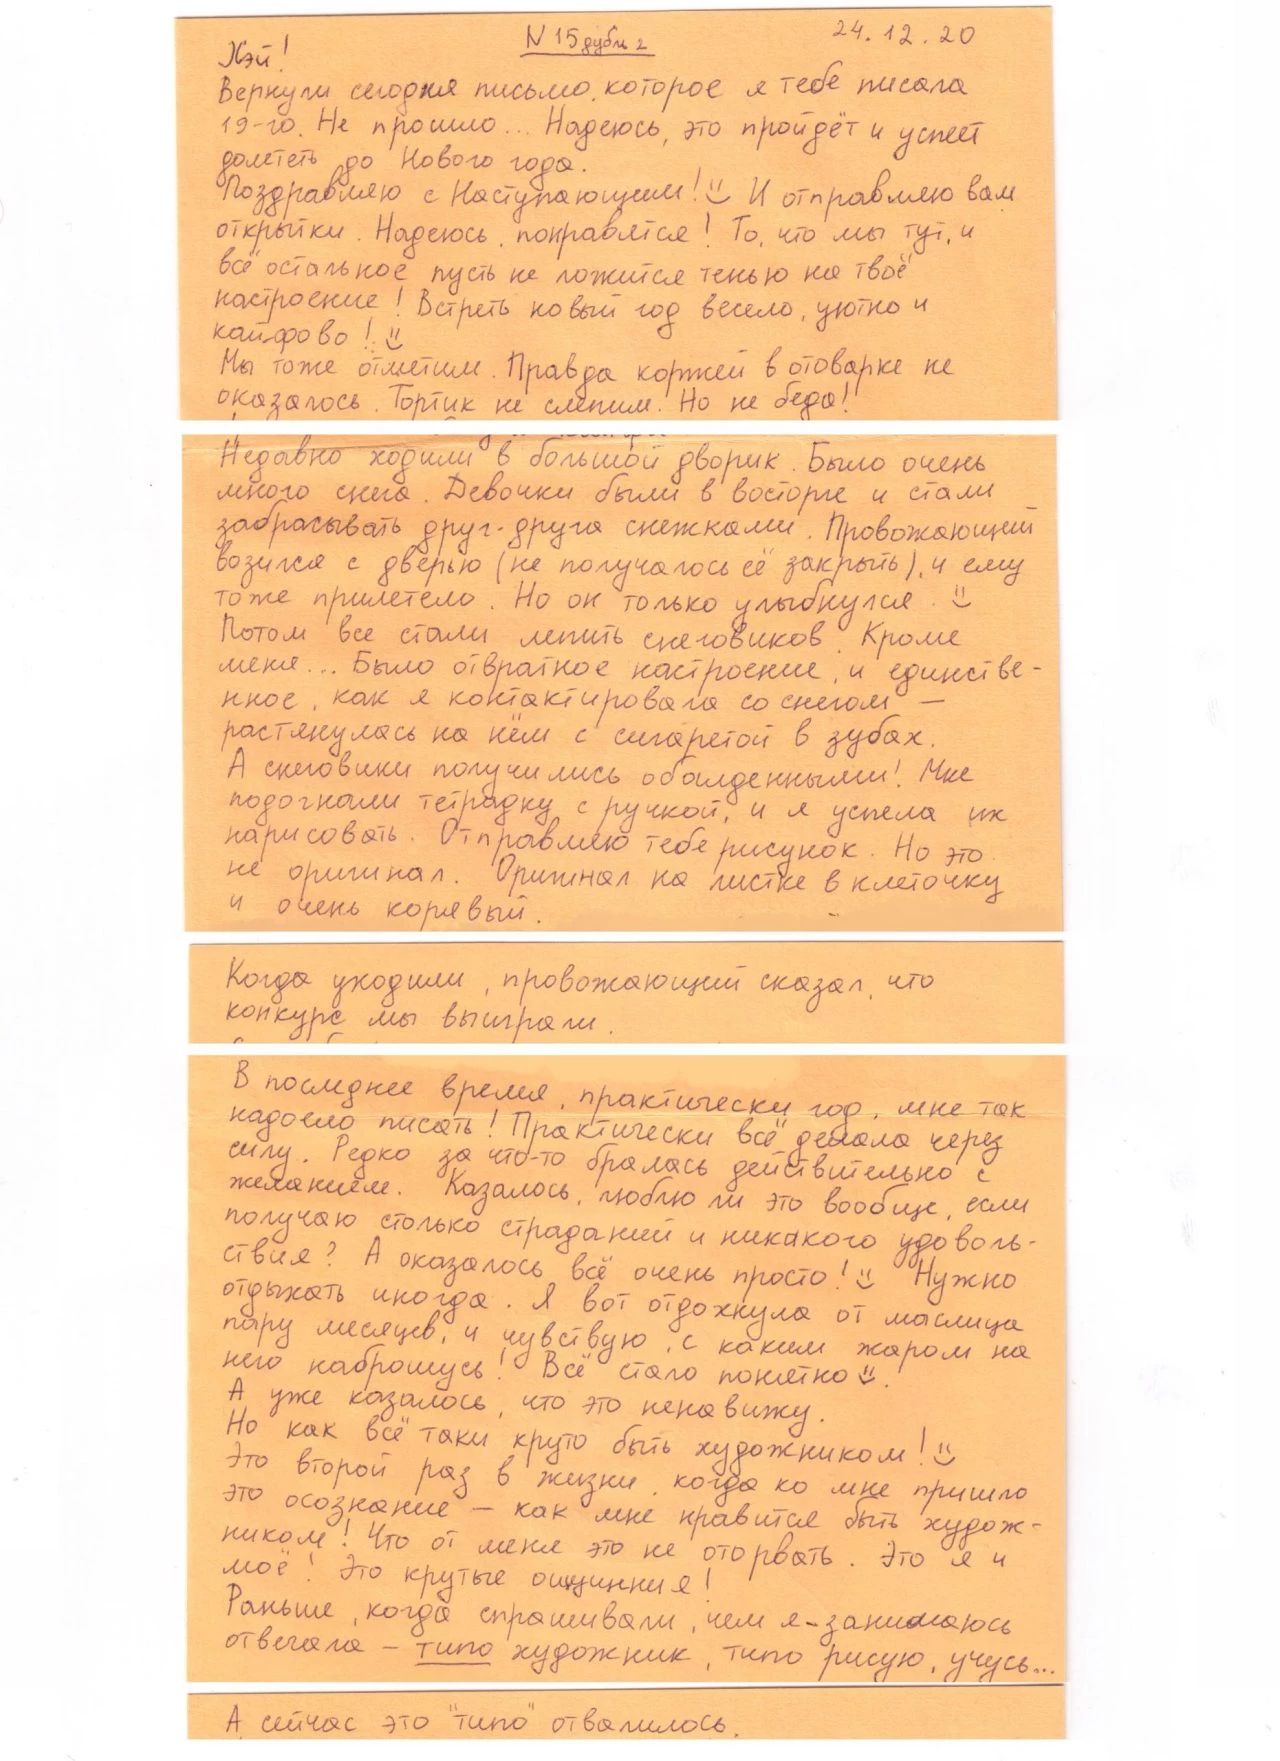 N 15 дубль 2
24.12.20
Хэй!
Вернули сегодня письмо, которое я тебе писала
19-го. Не прошло... Надеюсь, это пройдёт и успеет
долететь до Нового года.
Поздравляю с Наступающим! И отправляю вам
открытки. Надеюсь, понравятся! То, что мы тут, и
всё остальное пусть не ложится тенью на твоё
настроение! Встреть новый год весело, уютно и
кайфово!
Мы тоже отметим. Правда коржей в отоварке не
оказалось. Тортик не слепим. Но не беда!
Недавно ходили в большой дворик. Было очень
много снега. Девочки были в восторге и стали
забрасывать друг-друга снежками. Провожающий
возился с дверью (не получалось её закрыть), и ему
тоже прилетело. Но он только улыбнулся.
Потом все стали лепить снеговиков. Кроме
меня... Было отвратное настроение, и единстве-
нное, как я контактировала со снегом —
растянулась на нём с сигаретой в зубах.
А снеговики получились обалденными! Мне
подогнали тетрадку с ручкой, и я успела их
нарисовать. Отправляю тебе рисунок. Но это
не оригинал. Оригинал на листке в клеточку
и очень корявый.
Когда уходили, провожающий сказал, что
конкурс мы выиграли.
В последнее время, практически год, мне так
надоело писать! Практически всё делала через
силу. Редко за что-то бралась действительно с
желанием. Казалось, люблю ли это вообще, если
получаю столько страданий и никакого удоволь-
ствия? А оказалось всё очень просто! Нужно
отдыхать иногда. Я вот отдохнула от маслица
пару месяцев, и чувствую, с каким жаром на
него наброшусь! Всё стало понятно.
А уже казалось, что это ненавижу.
Но как всё таки круто быть художником!
Это второй раз в жизни, когда ко мне пришло
это осознание — как мне нравится быть худож-
ником! Что от меня это не оторвать. Это я и
моё! Это крутые ощущения!
Раньше, когда спрашивали, чем я занимаюсь
отвечала - типо художник, типо рисую, учусь...
А сейчас это "типо" отвалилось.